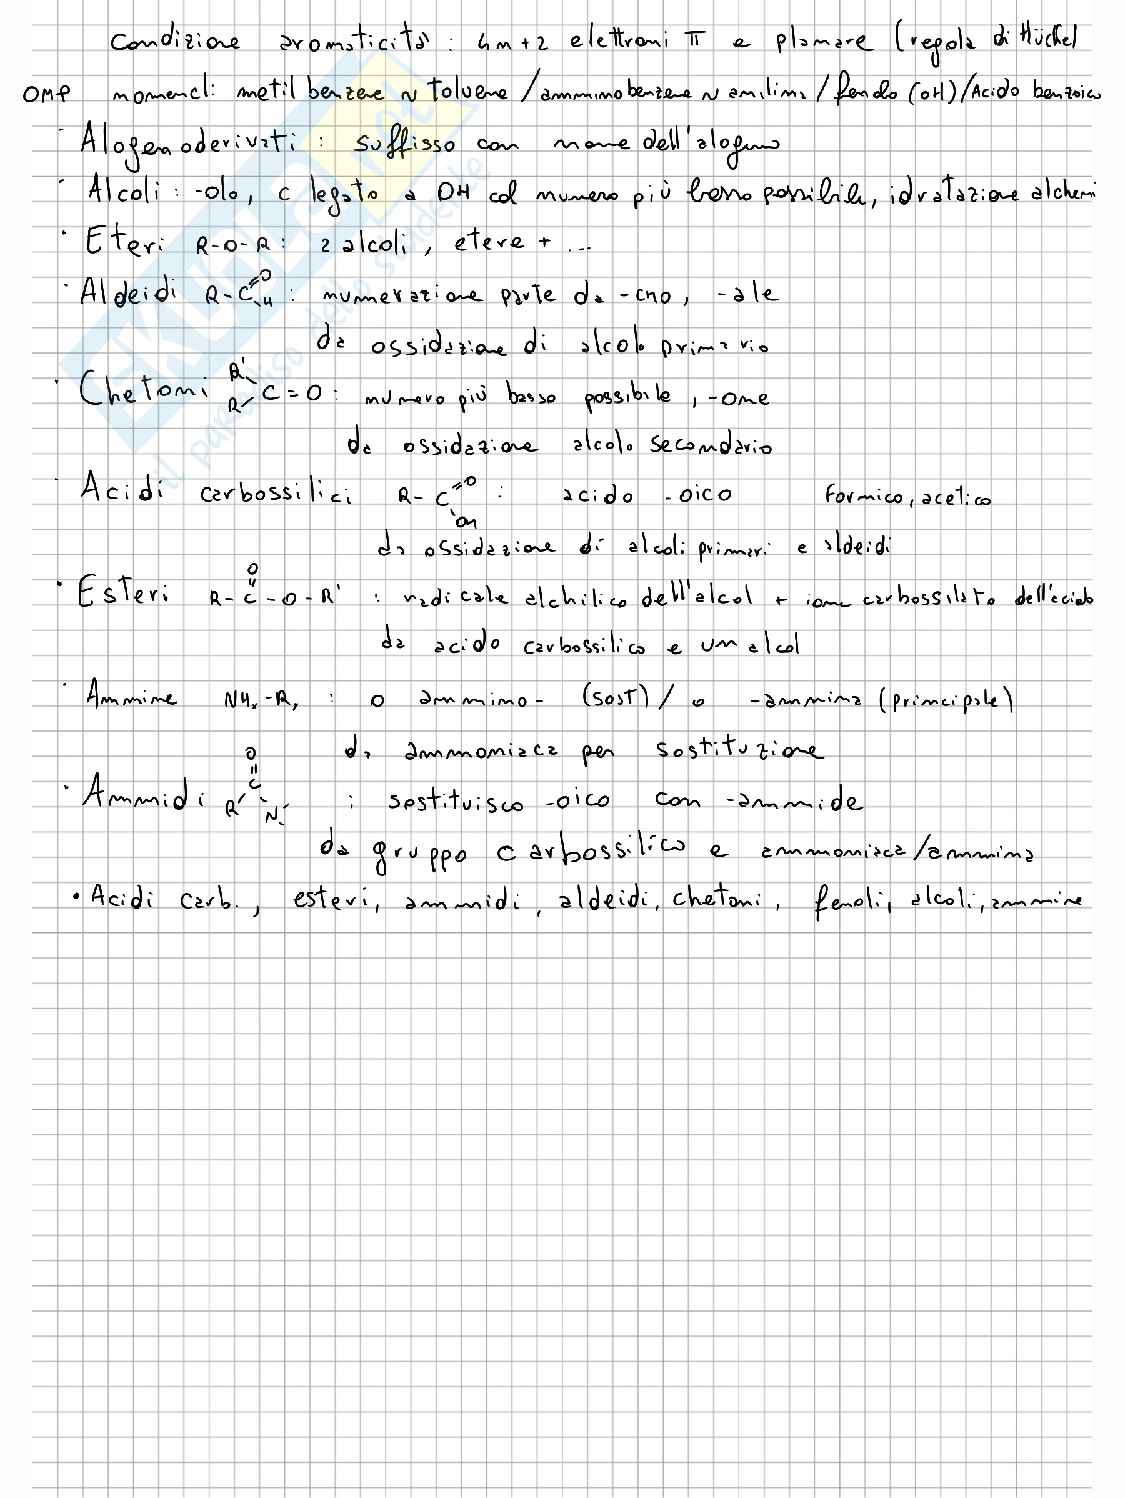 Condizione aromaticità : 4n+2 elettroni π e planare (regola di Hückel
OMP nomencl: metil benzene ~ toluene / amminobenzene ~ anilina / fenolo (OH) / Acido benzoico
· Alogenoderivati : suffisso con nome dell'alogeno
· Alcoli : -olo, C legato a OH col numero più basso possibile, idratazione alcheni
· Eteri R-O-R : 2 alcoli, etere + ...
· Aldeidi R-C=O H : numerazione parte da -CHO, -ale
da ossidazione di alcolo primario
· Chetoni R' R C=O : numero più basso possibile, -one
da ossidazione alcolo secondario
· Acidi carbossilici R-C=O OH : acido -oico formico, acetico
da ossidazione di alcoli primari e aldeidi
· Esteri R-C-O-R' O : radicale alchilico dell'alcol + ione carbossilato dell'acido
da acido carbossilico e un alcol
· Ammine NHx-Ry : o ammino- (sost) / o -ammina (principale)
da ammoniaca per sostituzione
· Ammidi R' C=O N : sostituisco -oico con -ammide
da gruppo carbossilico e ammoniaca/ammina
• Acidi carb., esteri, ammidi, aldeidi, chetoni, fenoli, alcoli, ammine
SKUOLA.net
il paradiso dello studente